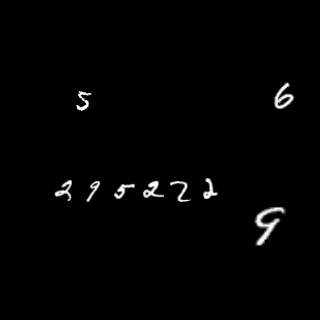 5 6
295222
9